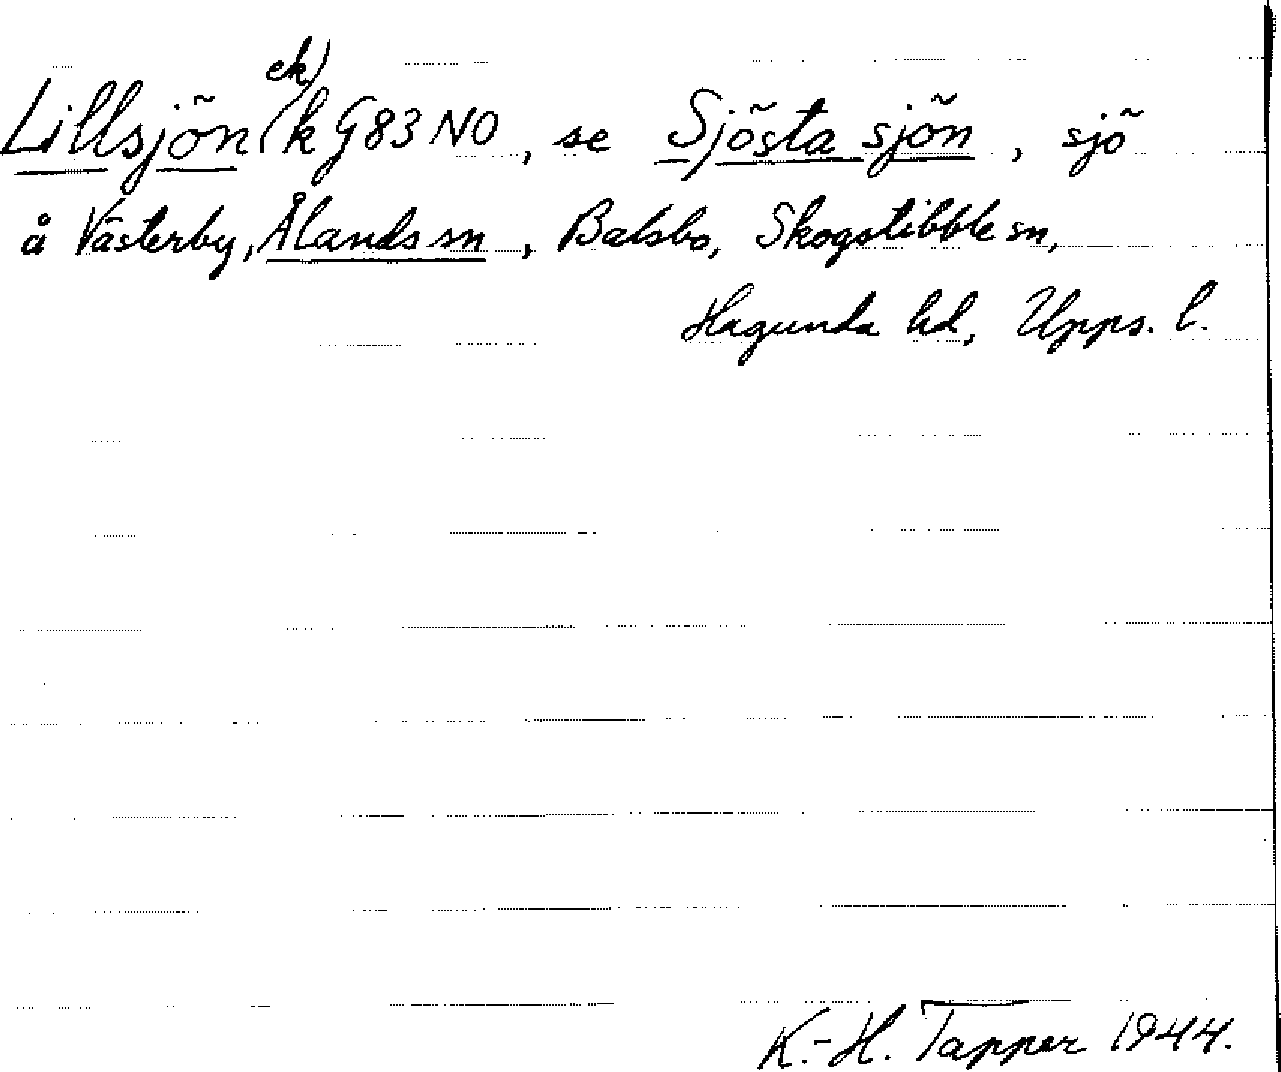 Lillsjön (ek) k G83 NO, se Sjösta sjön, sjö
å Västerby, Ålands sn, Balsbo, Skogstibble sn,
Hagunda hd, Upps. l.
K.-H. Tapper 1944.